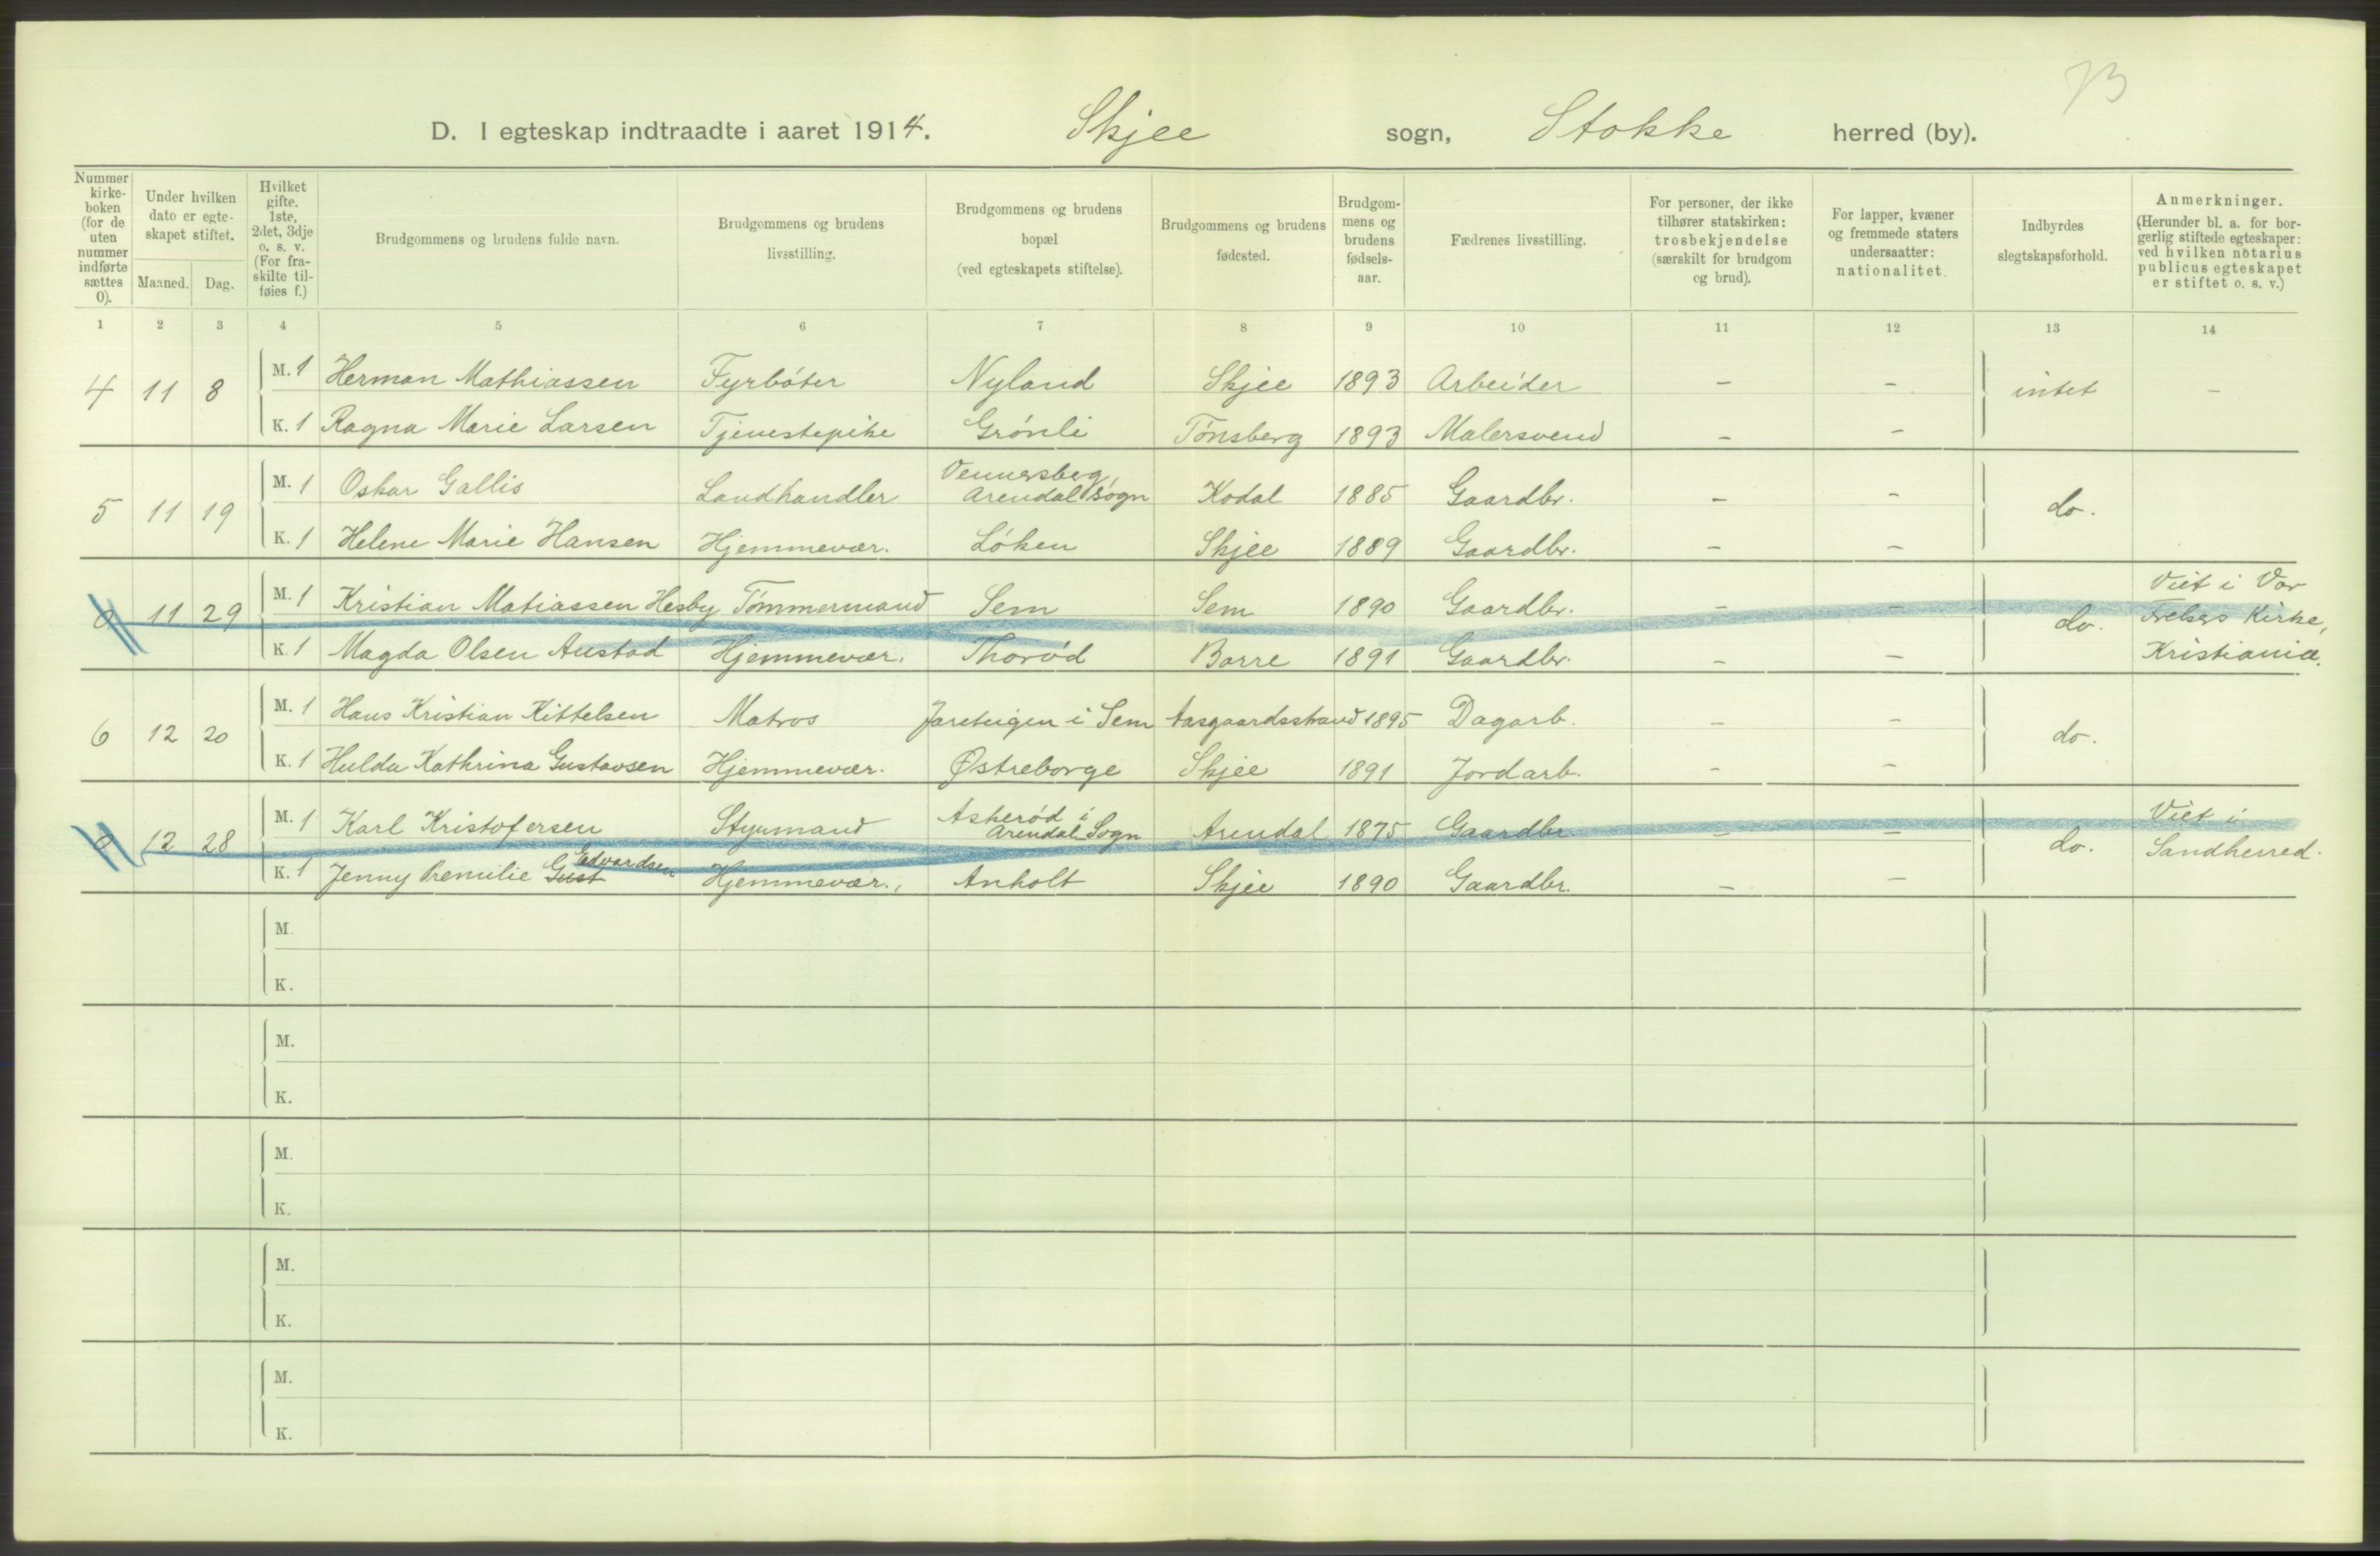 73
D. I egteskap indtraadte i aaret 1914. Skjee sogn, Stokke herred (by).
Nummer kirke-boken (for de uten nummer indførte sættes 0). | Under hvilken dato er egte-skapet stiftet. Maaned. Dag. | Hvilket gifte. 1ste, 2det, 3dje o. s. v. (For fra-skilte til-føies f.) | Brudgommens og brudens fulde navn. | Brudgommens og brudens livsstilling. | Brudgommens og brudens bopæl (ved egteskapets stiftelse). | Brudgommens og brudens fødested. | Brudgom-mens og brudens fødsels-aar. | Fædrenes livsstilling. | For personer, der ikke tilhører statskirken: trosbekjendelse (særskilt for brudgom og brud). | For lapper, kvæner og fremmede staters undersaatter: nationalitet. | Indbyrdes slegtskapsforhold. | Anmerkninger. (Herunder bl. a. for bor-gerlig stiftede egteskaper: ved hvilken notarius publicus egteskapet er stiftet o. s. v.)
1 2 3 4 5 6 7 8 9 10 11 12 13 14
4 11 8 M. 1 Herman Mathiassen Fyrbøter Nyland Skjee 1893 Arbeider – – intet –
K. 1 Ragna Marie Larsen Tjenestepike Grønli Tønsberg 1893 Malersvend – –
5 11 19 M. 1 Oskar Gallis Landhandler Vennersberg, Arendal sogn Kodal 1885 Gaardbr. – – do.
K. 1 Helene Marie Hansen Hjemmevær. Løken Skjee 1889 Gaardbr. – –
0 11 29 M. 1 Kristian Matiassen Hesby Tømmermand Sem Sem 1890 Gaardbr. – – do. Viet i Vor Frelsers Kirke, Kristiania.
K. 1 Magda Olsen Austad Hjemmevær. Thorød Borre 1891 Gaardbr. – –
6 12 20 M. 1 Hans Kristian Kittelsen Matros Jareteigen i Sem Aasgaardsstrand 1895 Dagarb. – – do.
K. 1 Hulda Kathrina Gustavsen Hjemmevær. Østreborge Skjee 1891 Jordarb. – –
0 12 28 M. 1 Karl Kristofersen Styrmand Askerød i Arendal Sogn Arendal 1875 Gaardbr – – do. Viet i Sandherred.
K. 1 Jenny Gust Edvardsen Hjemmevær., Anholt Skjee 1890 Gaardbr. – –
M.
K.
M.
K.
M.
K.
M.
K.
M.
K.